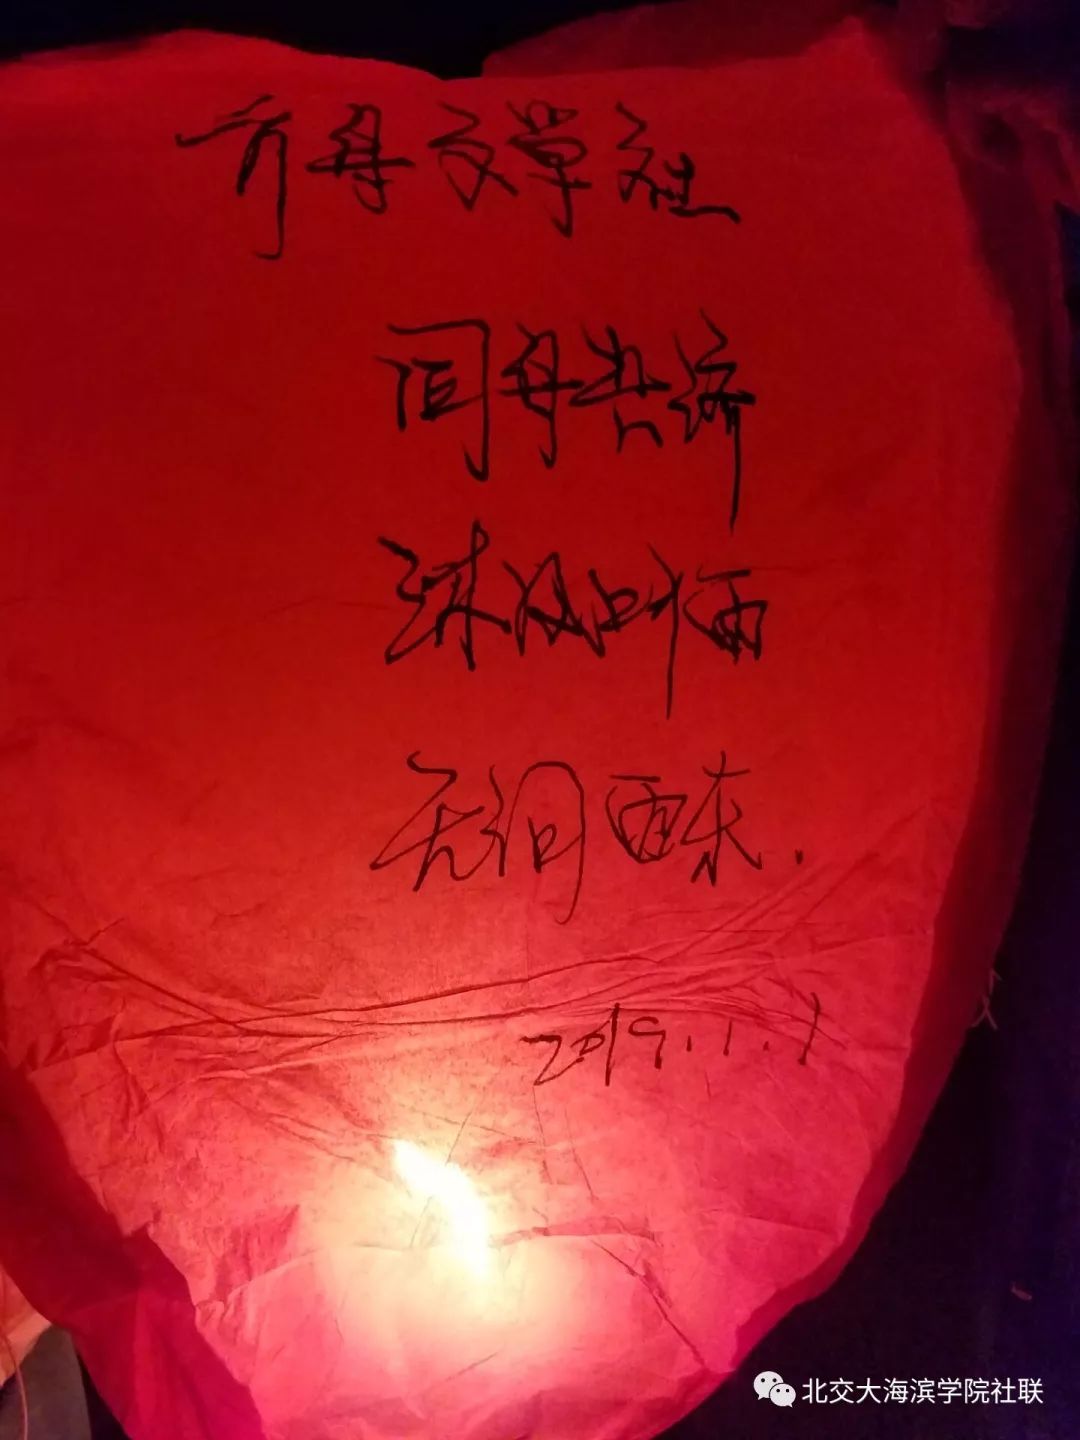 方舟文学社
同舟共济
沐风栉雨
无问西东.
2019.1.1
北交大海滨学院社联